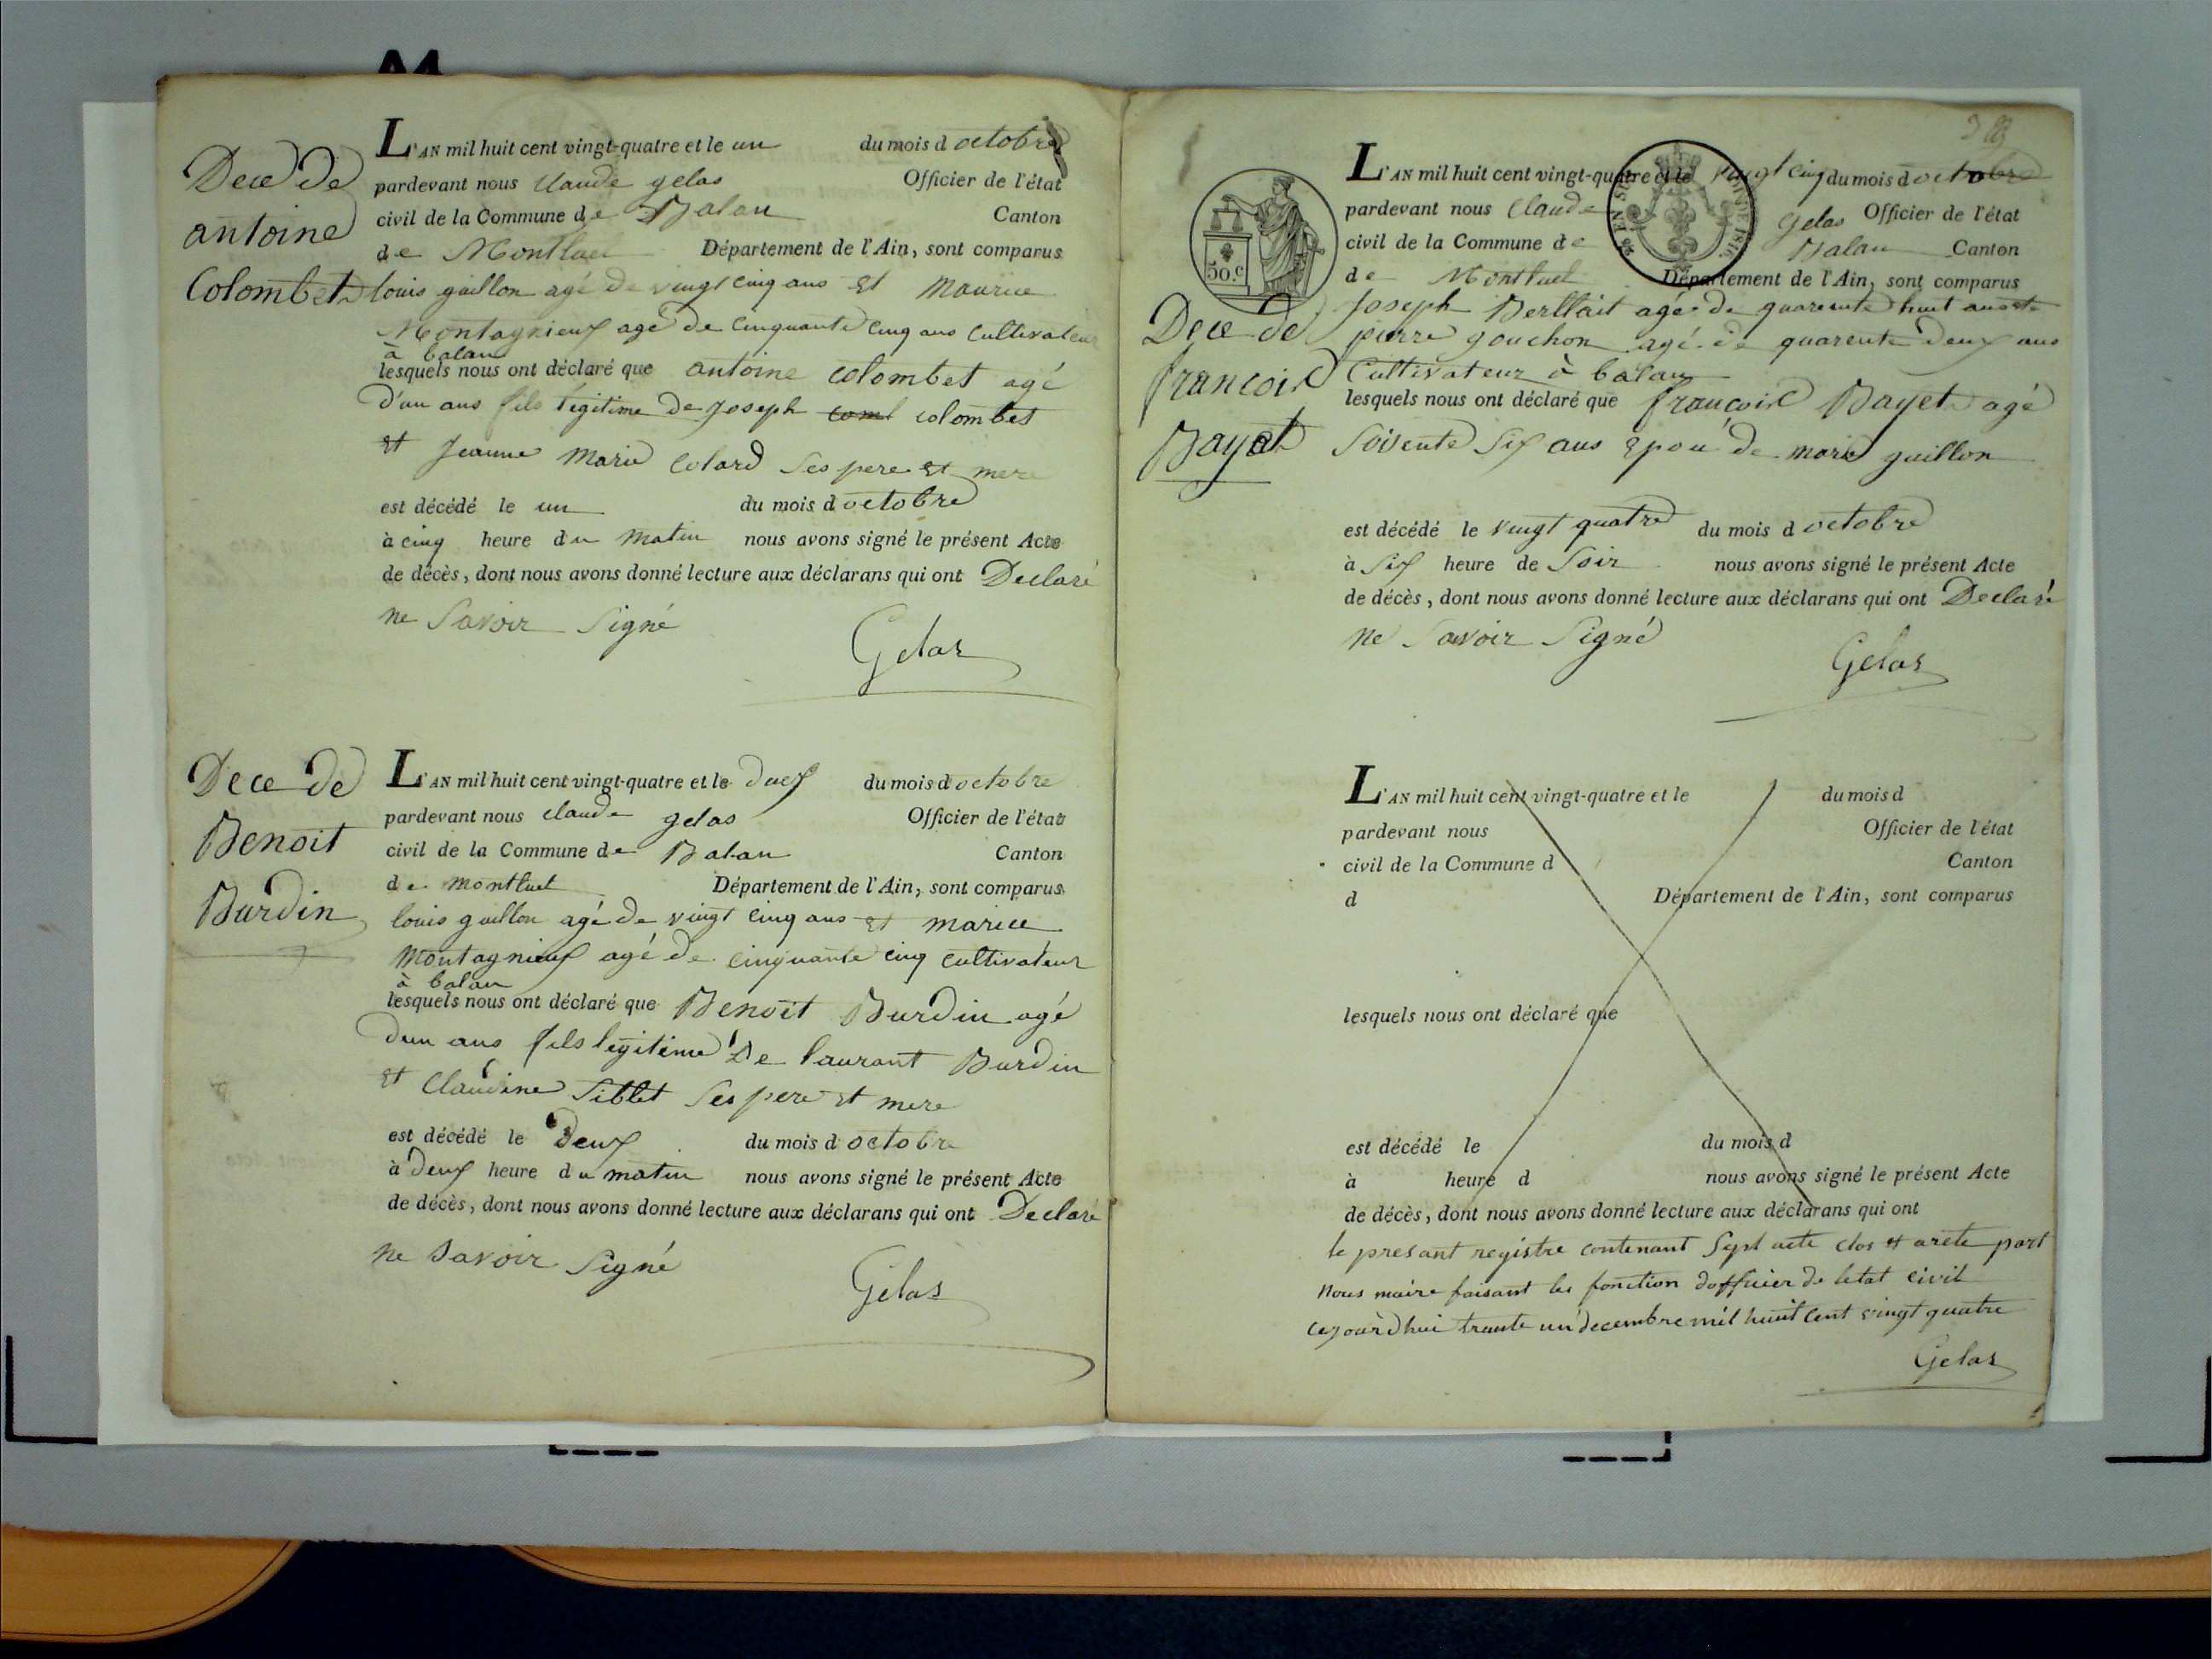 Dece de
antoine
Colombet
L'AN mil huit cent vingt-quatre et le un du mois d octobre
pardevant nous Claude gelas Officier de l'état
civil de la Commune de Balan Canton
de Montluel Département de l'Ain, sont comparus
louis guillon agé de vingt cinq ans et Maurice
Montagnieux agé de cinquante cinq ans cultivateur
à balan
lesquels nous ont déclaré que antoine colombet agé
d'un ans fils légitime de joseph coml colombet
et Jeanne Marie Colard Ses pere et mere
est décédé le un du mois d octobre
à cinq heure du Matin nous avons signé le présent Acte
de décès, dont nous avons donné lecture aux déclarans qui ont Declaré
ne Savoir Signé
Gelas
Dece de
Benoit
Burdin
L'AN mil huit cent vingt-quatre et le duex du mois d octobre
pardevant nous claude gelas Officier de l'état
civil de la Commune de Balan Canton
de montluel Département de l'Ain, sont comparus
louis guillon agé de vingt cinq ans et marice
Montagnieux agé de cinquante cinq cultivateur
à balan
lesquels nous ont déclaré que Benoit Burdin agé
dun ans fils légitime De laurant Burdin
et Claudine Siblet Ses pere et mere
est décédé le Deux du mois d octobre
à Deux heure du matin nous avons signé le présent Acte
de décès, dont nous avons donné lecture aux déclarans qui ont Declaré
ne Savoir Signé
Gelas
50.c
Dece de
francois
Bayet
L'AN mil huit cent vingt-quatre et le vingt cinq du mois d octobre
pardevant nous Claude Gelas Officier de l'état
civil de la Commune de Balan Canton
de Montluel Département de l'Ain, sont comparus
Joseph Berllait agé de quarente huit ans et
pierre gouchon agé de quarente deux ans
Cultivateur à balan
lesquels nous ont déclaré que francois Bayet agé
Soisente Six ans epou de marie guillon
est décédé le vingt quatre du mois d octobre
à Six heure de Soir nous avons signé le présent Acte
de décès, dont nous avons donné lecture aux déclarans qui ont Declaré
ne Savoir Signé
Gelas
L'AN mil huit cent vingt-quatre et le du mois d
pardevant nous Officier de l'état
civil de la Commune d Canton
d Département de l'Ain, sont comparus
lesquels nous ont déclaré que
est décédé le du mois d
à heure d nous avons signé le présent Acte
de décès, dont nous avons donné lecture aux déclarans qui ont
le presant registre contenant Sept acte clos et arete part
Nous maire faisant les fonction dofficier de letat civil
cejourdhui trante un decembre mil huit cent vingt quatre
Gelas